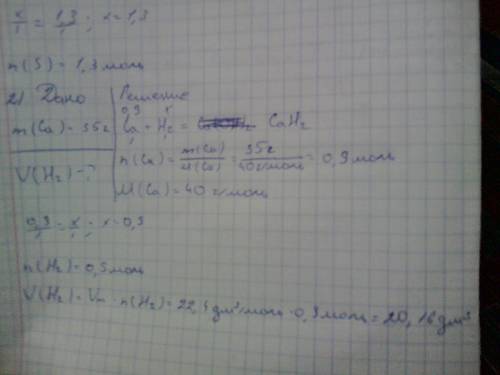 x/1 = 1,3/1; x = 1,3
n(S) = 1,3 моль
2) Дано Решение
0,9 x
m(Ca) = 35г Ca + H₂ = CaH₂
V(H₂) - ? n(Ca) = m(Ca)/M(Ca) = 35г/40г/моль = 0,9 моль
M(Ca) = 40 г/моль
0,9/1 = x/1; x = 0,9
n(H₂) = 0,9 моль
V(H₂) = Vm · n(H₂) = 22,4 дм³/моль · 0,9 моль = 20,16 дм³